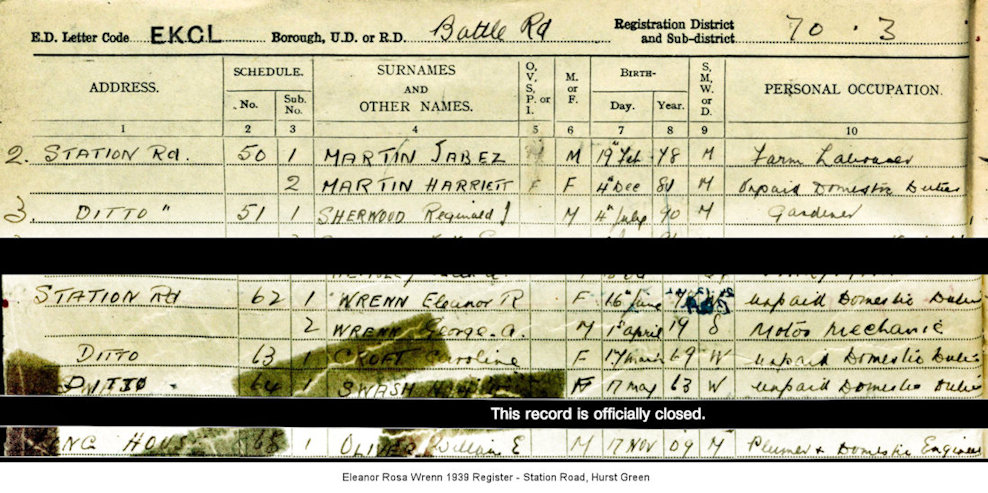 E.D. Letter Code EKCL Borough, U.D. or R.D. Battle Rd Registration District and Sub-district 70 . 3
ADDRESS. SCHEDULE. No. Sub. No. SURNAMES AND OTHER NAMES. O, V, S, P. or I. M. or F. BIRTH- Day. Year. S, M, W, or D. PERSONAL OCCUPATION.
1 2 3 4 5 6 7 8 9 10
2. STATION Rd. 50 1 MARTIN JABEZ M 19 Feb 78 M Farm Labourer
2 MARTIN HARRIETT F F 4 Dec 81 M Unpaid Domestic Duties
3. DITTO " 51 1 SHERWOOD Reginald J M 4 July 90 M Gardener
STATION Rd 62 1 WRENN Eleanor R F 16 June unpaid Domestic Duties
2 WRENN George. A. M 1st April 19 S Motor Mechanic
DITTO 63 1 CROFT Caroline F 17 March 69 W unpaid Domestic Duties
DITTO 64 1 SWASH F 17 May 63 W unpaid Domestic Duties
This record is officially closed.
68 1 OLIVER William E M 17 NOV 09 M Plumer + Domestic Engineer
Eleanor Rosa Wrenn 1939 Register - Station Road, Hurst Green